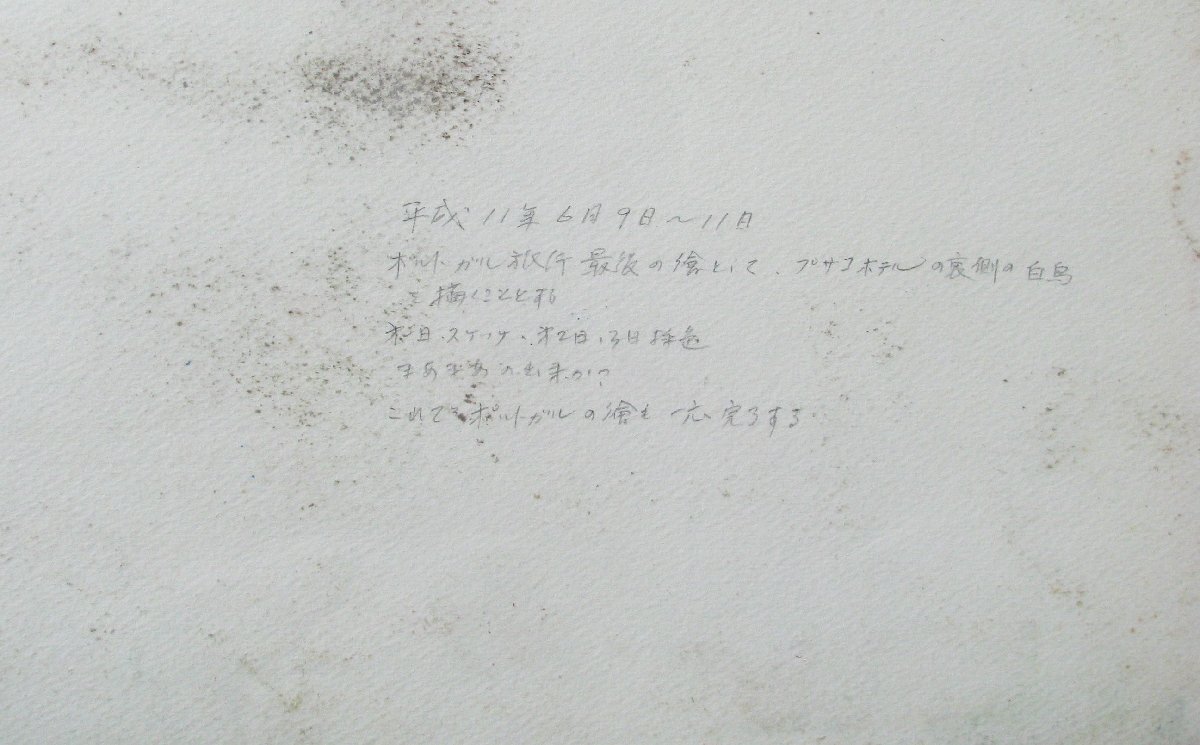 平成11年6月9日~11日
ポルトガル旅行最後の繪として、ブサコホテルの裏側の白鳥
を描くことする
本日、スケッチ、才2日、3日採色
まあまあの出来かつ
これでポルトガルの繪も一応完了する